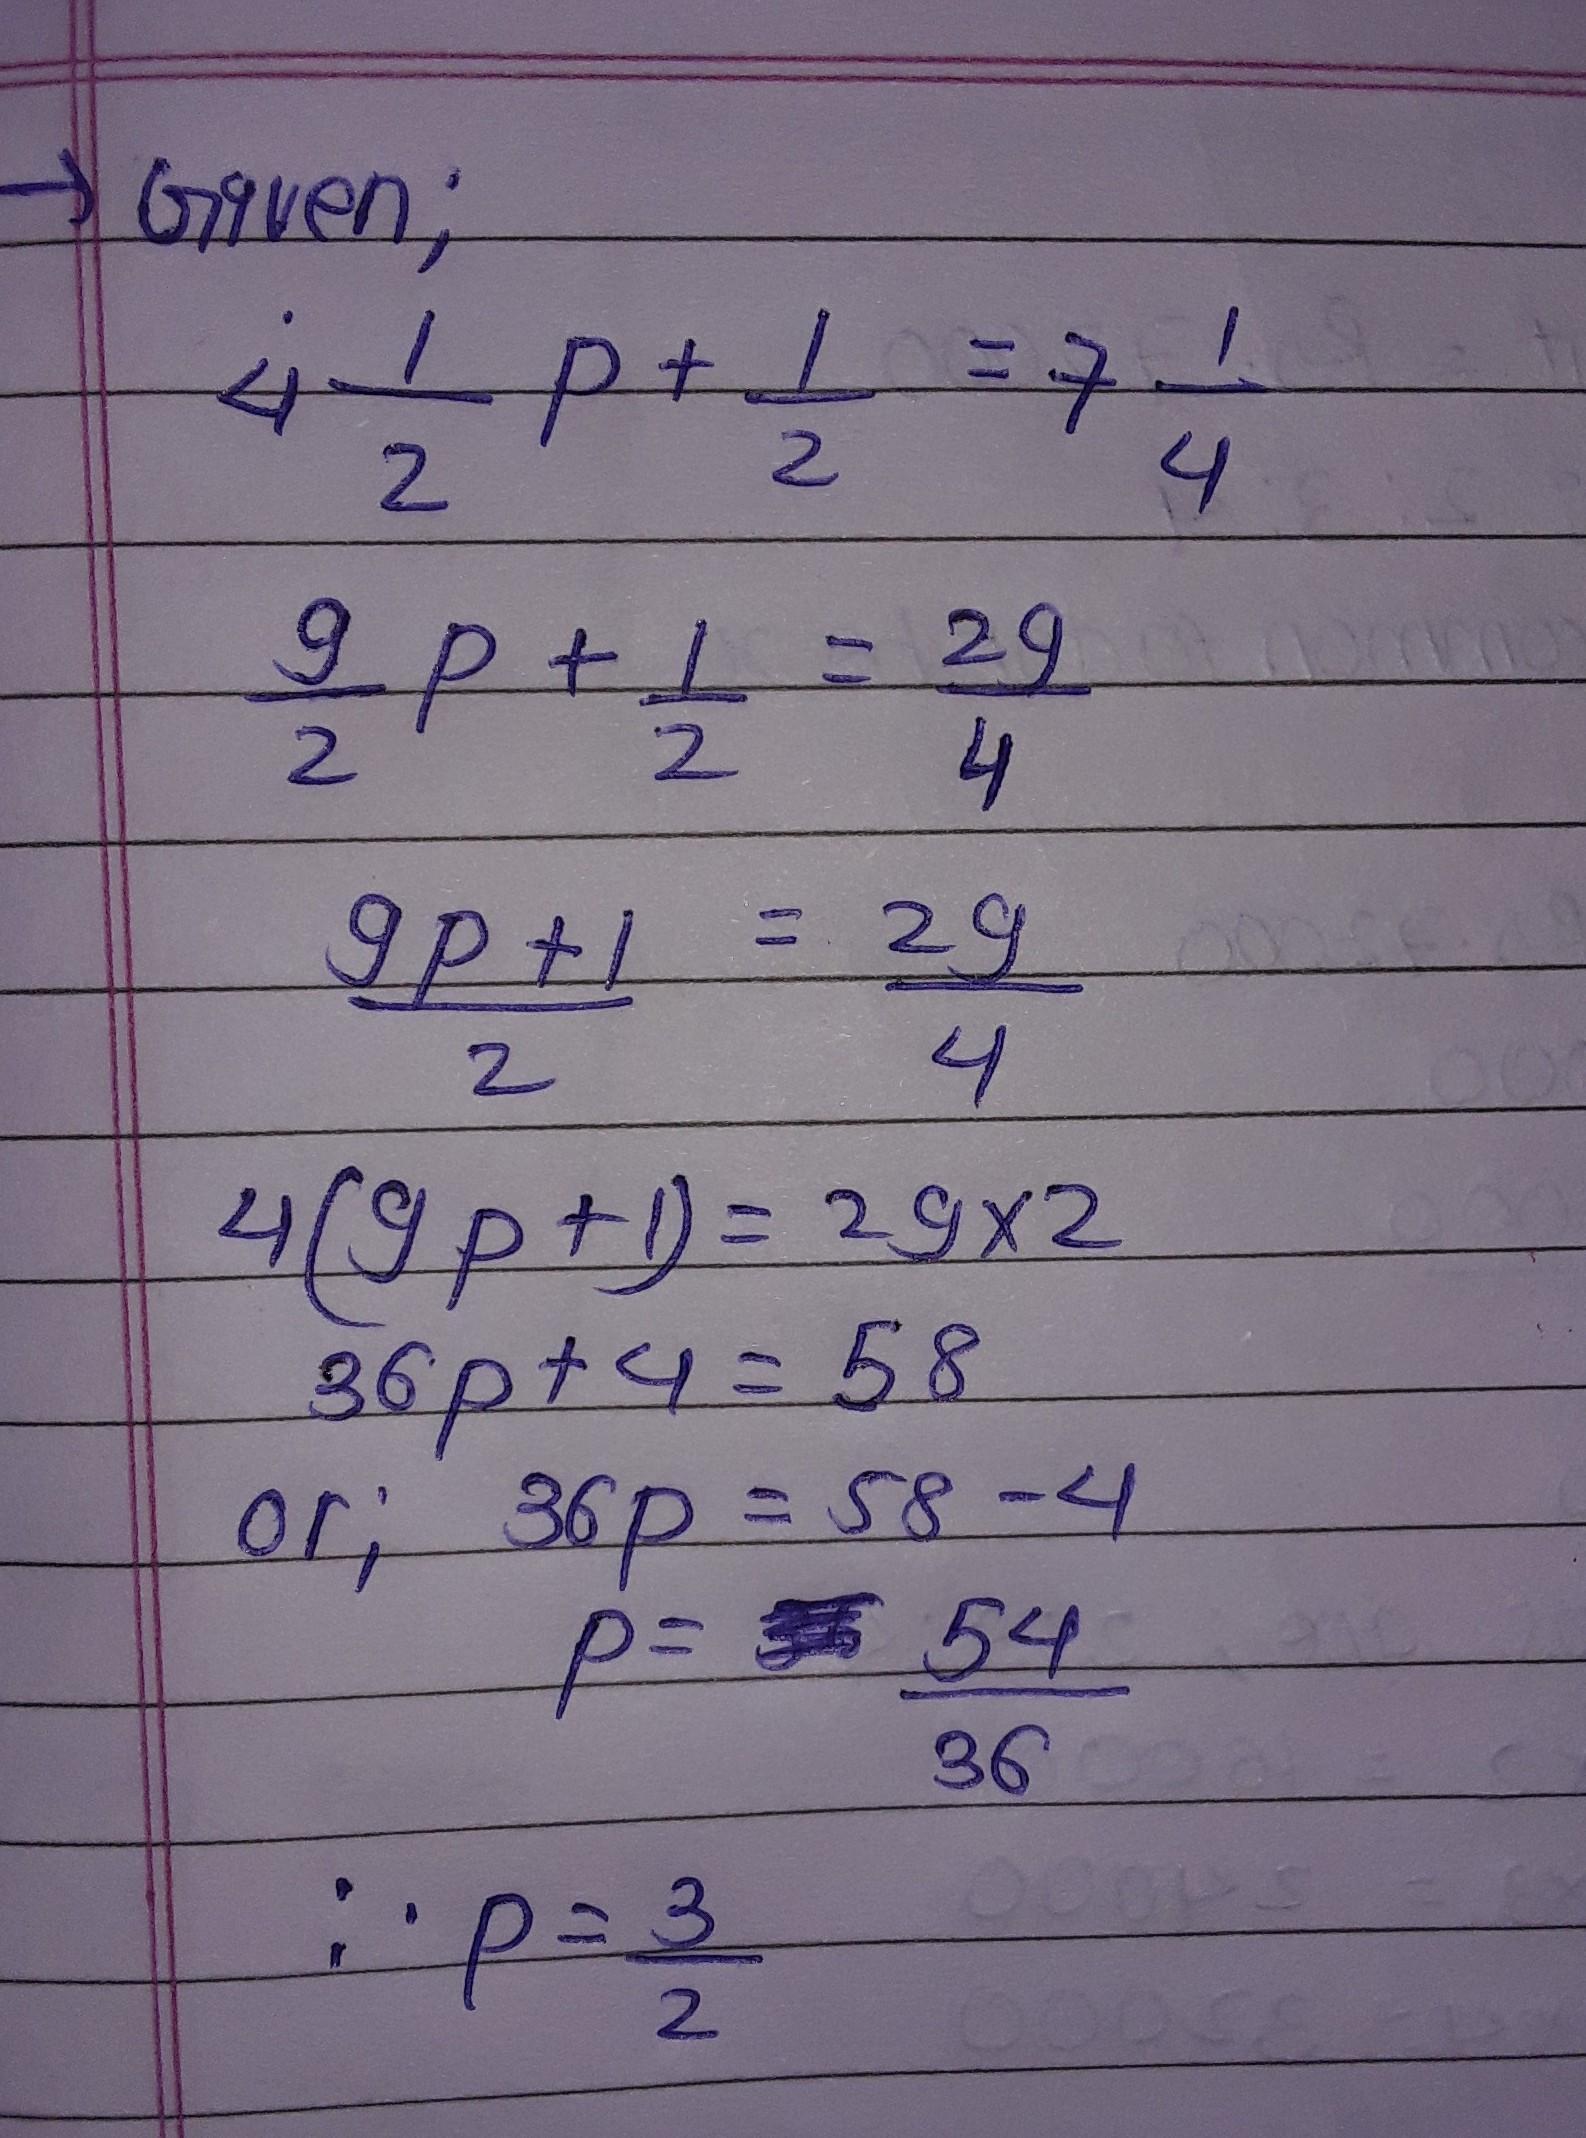 → Given;
4 1/2 p + 1/2 = 7 1/4
9/2 p + 1/2 = 29/4
9p+1/2 = 29/4
4(9p+1) = 29x2
36p+4 = 58
or; 36p = 58-4
p = 54/36
∴ p = 3/2